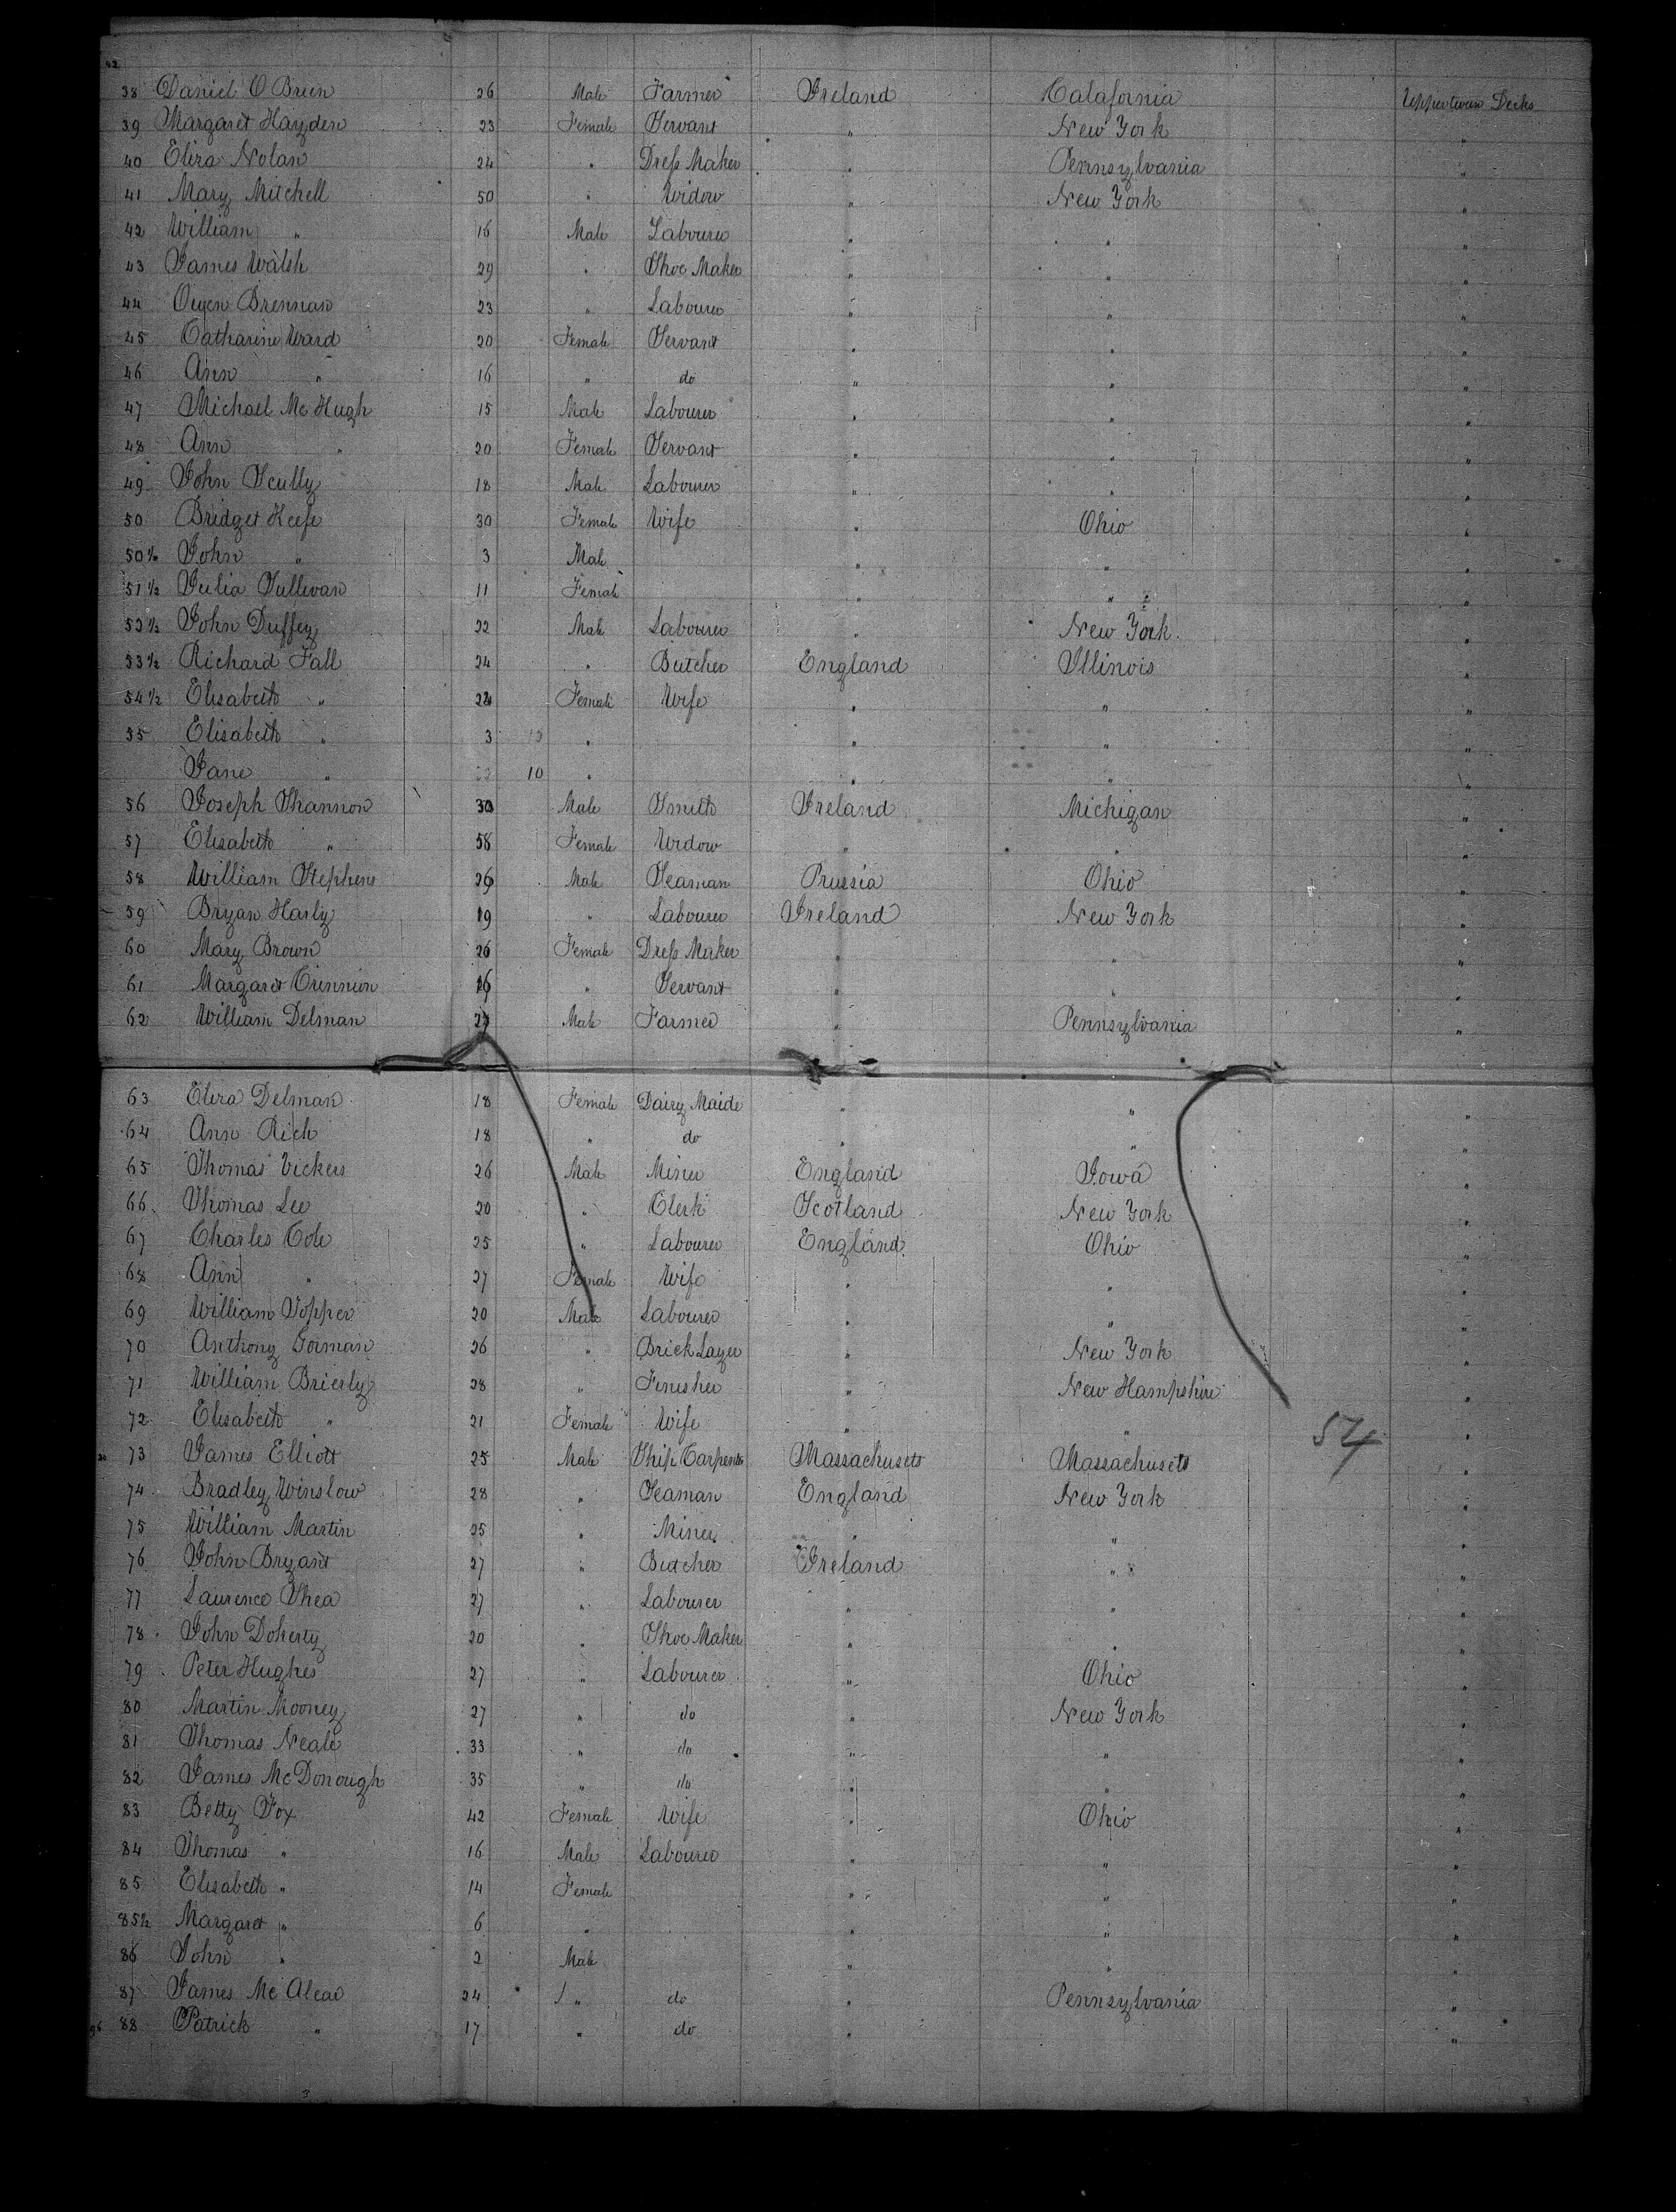 42
38 Daniel O Brien 26 Male Farmer Ireland Calafornia Upper tween Decks
39 Margaret Hayden 23 Female Servant " New York "
40 Eliza Nolan 24 " Dress Maker " Pennsylvania "
41 Mary Mitchell 50 " Widow " New York "
42 William " 16 Male Labourer " " "
43 James Walsh 29 " Shoe Maker " " "
44 Owen Brennan 23 " Labourer " " "
45 Catharine Ward 20 Female Servant " " "
46 Ann " 16 " do " " "
47 Michael Mc Hugh 15 Male Labourer " " "
48 Ann " 20 Female Servant " " "
49 John Scully 18 Male Labourer " " "
50 Bridget Keefe 30 Female Wife " Ohio "
50½ John " 3 Male " " "
51½ Julia Sullivan 11 Female " " "
52½ John Duffey 22 Male Labourer " New York "
53½ Richard Fall 24 " Butcher England Illinois "
54½ Elisabeth " 24 Female Wife " " "
55 Elisabeth " 3 " " " "
Jane " 10 " " " "
56 Joseph Shannon 30 Male Smith Ireland Michigan "
57 Elisabeth " 58 Female Widow " " "
58 William Stephens 26 Male Seaman Prussia Ohio "
59 Bryan Harly 19 " Labourer Ireland New York "
60 Mary Brown 26 Female Dress Maker " " "
61 Margaret Crinnion " Servant " " "
62 William Delman Male Farmer " Pennsylvania "
63 Eliza Delman 18 Female Dairy Maide " " "
64 Ann Rich 18 " do " " "
65 Thomas Vickers 26 Male Miner England Iowa "
66 Thomas Lee 20 " Clerk Scotland New York "
67 Charles Cole 25 " Labourer England Ohio "
68 Ann " 27 Female Wife " " "
69 William Topper 20 Male Labourer " " "
70 Anthony Gorman 26 " Brick Layer " New York "
71 William Brierly 28 " Finisher " New Hampshire "
72 Elisabeth " 21 Female Wife " " "
54
73 James Elliott 25 Male Ship Carpenter Massachusets Massachusets "
74 Bradley Winslow 28 " Seaman England New York "
75 William Martin 25 " Miner " " "
76 John Bryant 27 " Butcher Ireland " "
77 Laurence Shea 27 " Labourer " " "
78 John Doherty 20 " Shoe Maker " " "
79 Peter Hughes 27 " Labourer " Ohio "
80 Martin Mooney 27 " do " New York "
81 Thomas Neale 33 " do " " "
82 James McDonough 35 " do " " "
83 Betty Fox 42 Female Wife " Ohio "
84 Thomas " 16 Male Labourer " " "
85 Elisabeth " 14 Female " " "
85½ Margaret " 6 " " " "
86 John " 2 Male " " "
87 James Mc Alear 24 " do " Pennsylvania "
88 Patrick " 17 " do " "
3